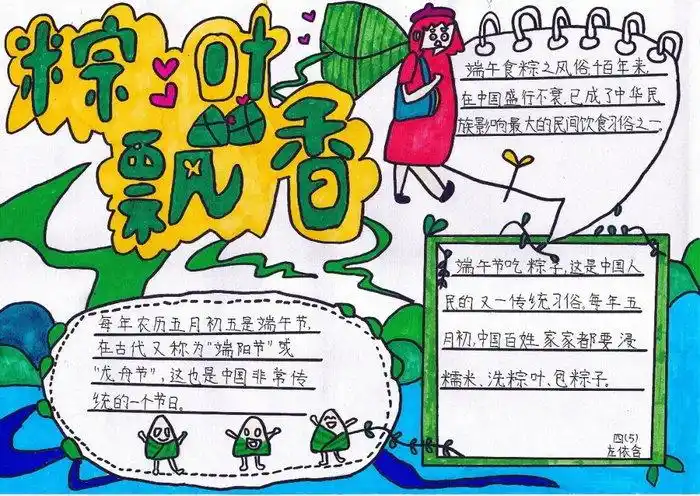 粽叶
飘香
端午食粽之风俗,千百年来,
在中国盛行不衰,已成了中华民
族影响最大的民间饮食习俗之一。
端午节吃粽子,这是中国人
民的又一传统习俗。每年五
月初,中国百姓家家都要浸
糯米、洗粽叶、包粽子。
每年农历五月初五是端午节,
在古代又称为“端阳节”或
“龙舟节”,这也是中国非常传
统的一个节日。
四(5)
左依含